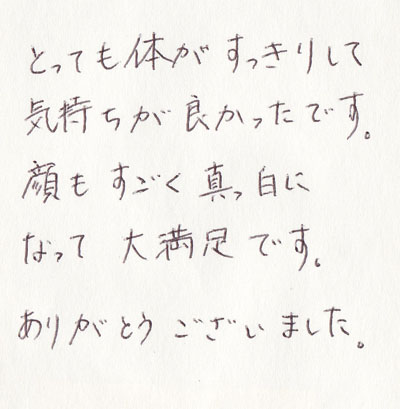 とっても体がすっきりして
気持ちが良かったです。
顔もすごく真っ白に
なって大満足です。
ありがとうございました。